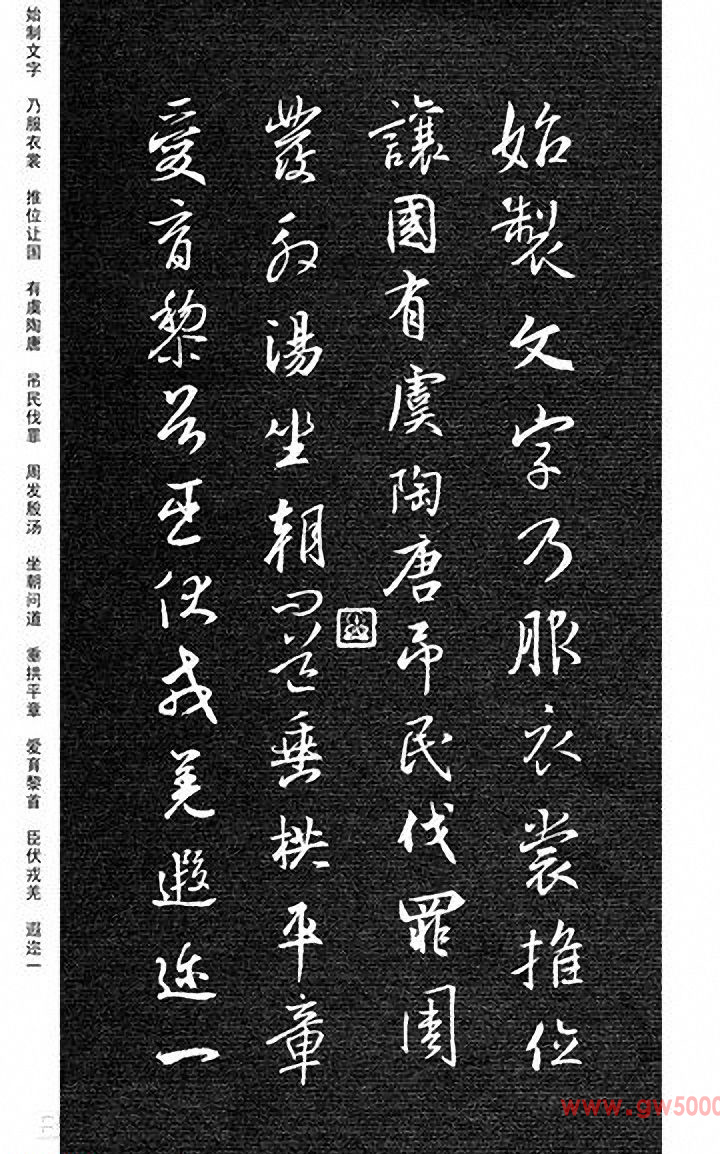 始製文字乃服衣裳推位
讓國有虞陶唐吊民伐罪周
發殷湯坐朝問道垂拱平章
愛育黎首臣伏戎羌遐迩一
始制文字 乃服衣裳 推位让国 有虞陶唐 吊民伐罪 周发殷汤 坐朝问道 垂拱平章 爱育黎首 臣伏戎羌 遐迩一
www.gw5000